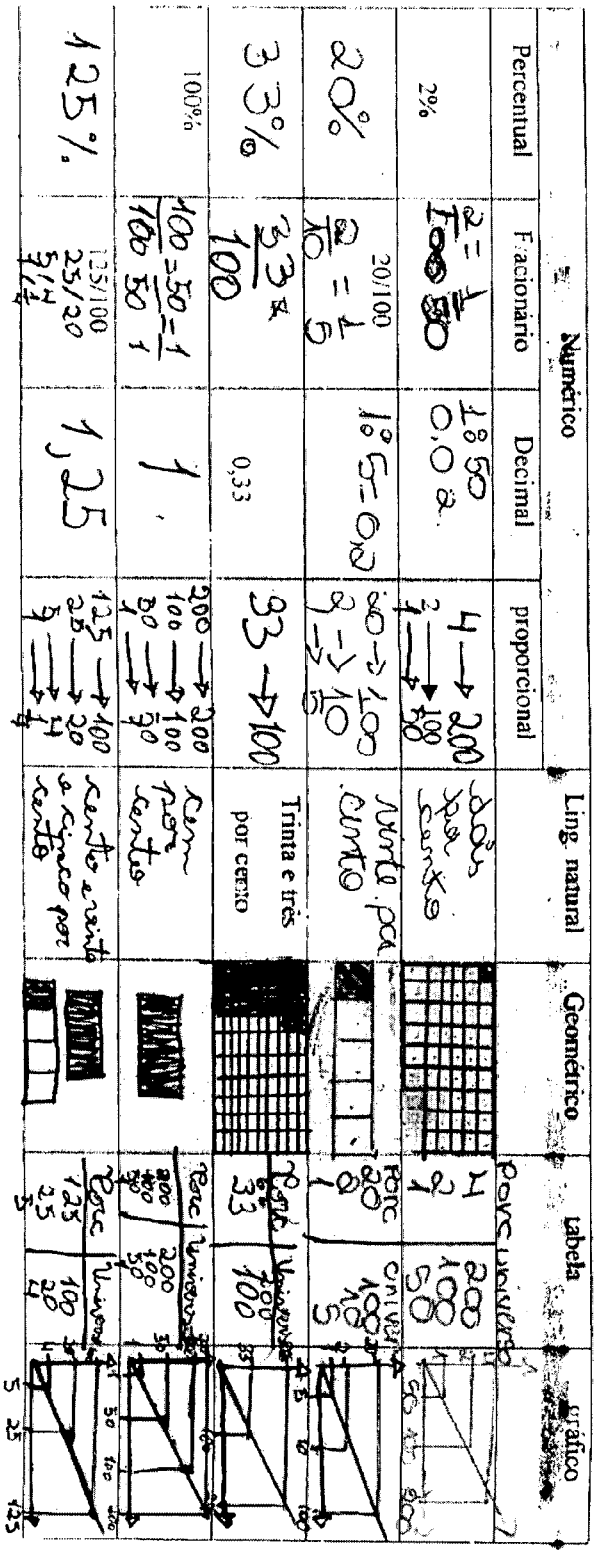 Numérico
Ling. natural
Geométrico
tabela
gráfico
Percentual
Fracionário
Decimal
proporcional
2%
2/100 = 1/50
1:50
0,02
4 → 200
2 → 100
1 → 50
dois
por
cento
Porc universo
4 200
2 100
1 50
20%
20/100
2/10 = 1/5
1:5=0,2
20 → 100
2 → 10
1 → 5
vinte por
cinto
Porc univer
20 100
2 10
1 5
33%
33/100
0,33
33 → 100
Trinta e três
por cento
Universo
33 100
100%
100/100 = 50/50 = 1/1
1
200 → 200
100 → 100
50 → 50
cem
por
cento
Porc Universo
200 200
100 100
50 50
125%
125/100
25/20
5/4
1,25
125 → 100
25 → 20
5 → 4
cento e vinte
e cinco por
cento
Porc Universo
125 100
25 20
5 4
5 25 125